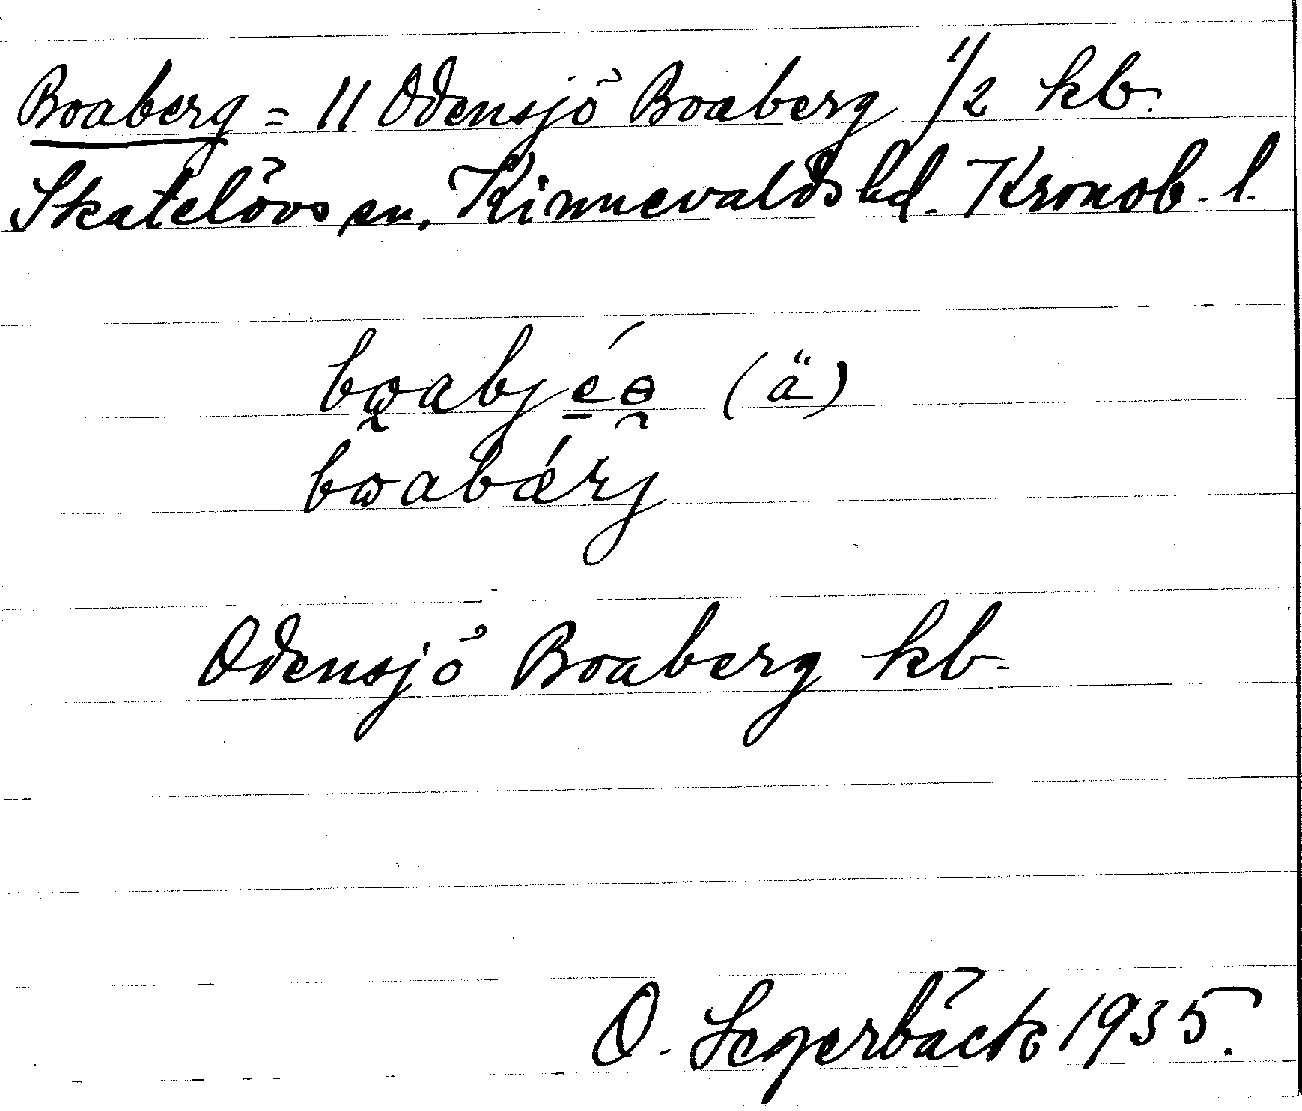 Boaberg = 11 Odensjö Boaberg 1/2 kb.
Skatelövs sn. Kinnevalds hd. Kronob. l.
bωabjéɵ (ä)
bωabǽrj
Odensjö Boaberg kb
O. Segerbäck 1935.